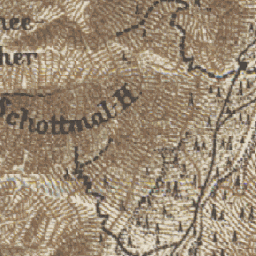 nee-
her
Schottmal H.